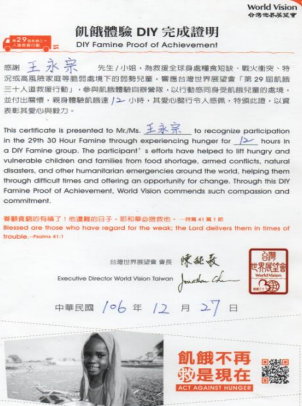 World Vision
台灣世界展望會
第29屆飢餓三十
人道救援行動
飢餓體驗 DIY 完成證明
DIY Famine Proof of Achievement
感謝 王永宗 先生/小姐，為救援全球身處糧食短缺、戰火衝突、特
況或高風險家庭等脆弱處境下的弱勢兒童，響應台灣世界展望會「第29屆飢餓
三十人道救援行動」，參與飢餓體驗自辦營隊，以行動感同身受飢餓兒童的處境，
並付出關懷。親身體驗飢餓達 12 小時，其愛心關行令人感佩，特頒此證，以資
表彰其愛心與毅力。
This certificate is presented to Mr./Ms. 王永宗 to recognize participation
in the 29th 30 Hour Famine through experiencing hunger for 12 hours in
a DIY Famine group. The participant's efforts have helped to lift hungry and
vulnerable children and families from food shortage, armed conflicts, natural
disasters, and other humanitarian emergencies around the world, helping them
through difficult times and offering an opportunity for change. Through this DIY
Famine Proof of Achievement, World Vision commends such compassion and
commitment.
眷顧貧窮的有福了！他遭難的日子，耶和華必搭救他。—詩篇 41 篇 1 節
Blessed are those who have regard for the weak; the Lord delivers them in times of
trouble. -Psalms 41:1
台灣世界展望會 會長
Executive Director World Vision Taiwan
台灣
世界展望會
中華民國 106 年 12 月 27 日
飢餓不再
救是現在
ACT AGAINST HUNGER